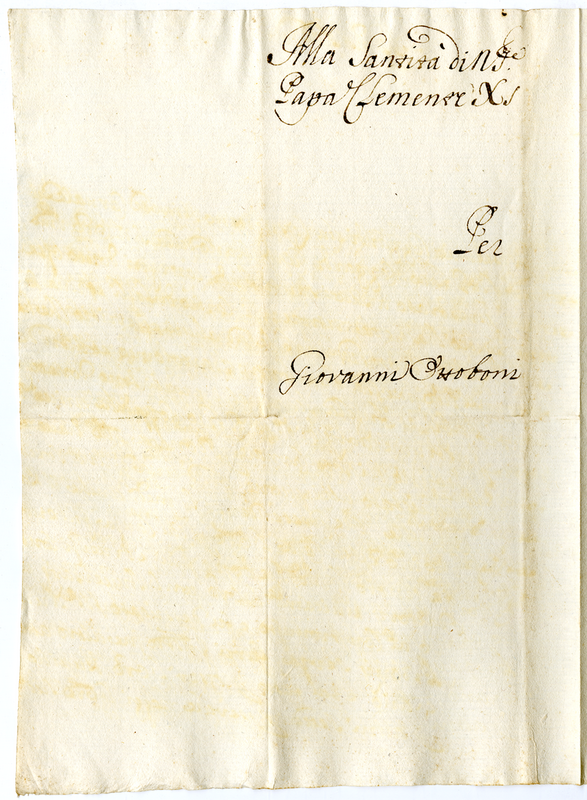 Alla Santità di N. Sre
Papa Clemente XI
Per
Giovanni Ottoboni